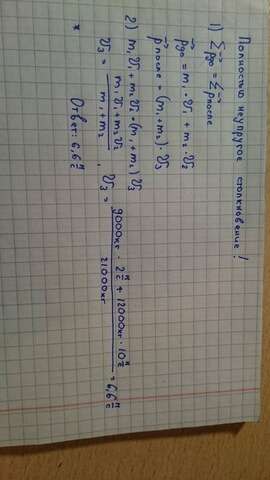 Полностью неупругое столкновение!
1) Σp⃗до = Σp⃗после
p⃗до = m₁ · v₁ + m₂ · v₂
p⃗после = (m₁+m₂) · v₃
2) m₁v₁ + m₂v₂ = (m₁+m₂)v₃
v₃ = (m₁v₁ + m₂v₂)/(m₁+m₂), v₃ = (9000кг · 2м/с + 12000кг · 10м/с)/21000кг = 6,6м/с
Ответ: 6,6м/с
*